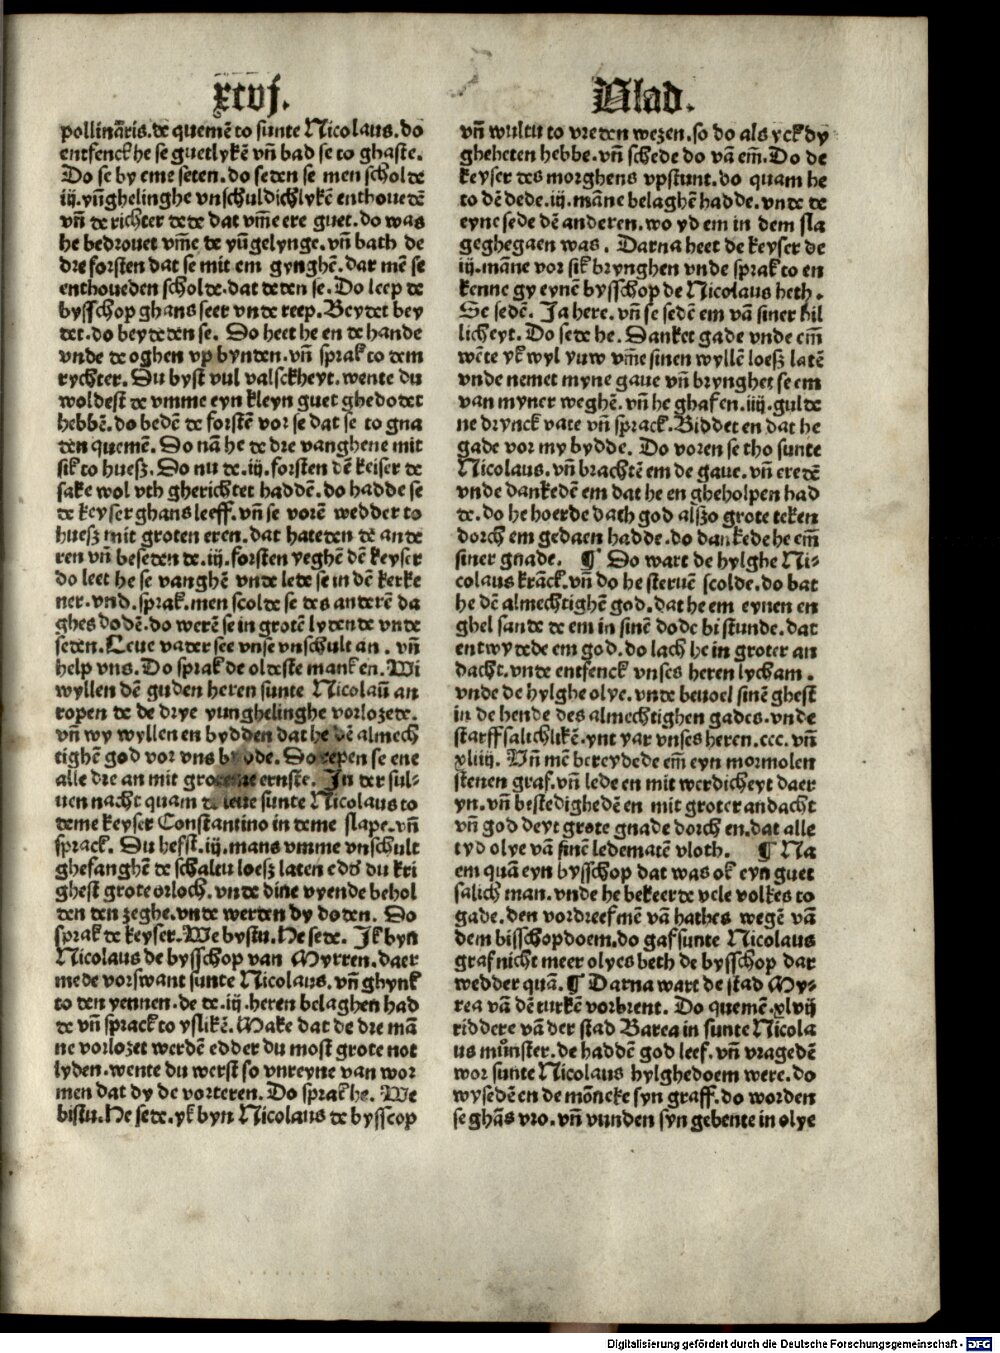 xcvj.
Blad.
pollinaris. de quemē to sunte Nicolaus. do
entfenck he se guetlykē vñ bad se to ghaste.
Do se by eme seten. do seden se men scholde
iij. yūghelinghe vnschuldichlykē enthouedē
vñ de richter dede dat vm̄e ere guet. do was
he bedrouet vm̄e de yūgelynge. vñ bath de
dre forsten dat se mit em gynghē. dar mē se
enthoueden scholde. dat deden se. Do leep de
bysschop ghans seer vnde reep. Beydet bey
det. do beydeden se. Do heet he en de hande
vnde de oghen vp bynden. vñ sprak to dem
rychter. Du byst vul valsckheyt. wente du
woldest de vmme eyn kleyn guet ghedodet
hebbē. do bedē de forstē vor se dat se to gna
den quemē. Do nā he de dre vanghene mit
sik to huesz. Do nu de .iij. forsten dē keiser de
sake wol vth gherichtet haddē. do hadde se
de keyser ghans leeff. vñ se vorē wedder to
huesz mit groten eren. dat hateden de ande
ren vñ beseden de .iij. forsten yeghē dē keyser
do leet he se vanghē vnde lede se in dē kerke
ner. vnd. sprak. men scolde se des anderē da
ghes dodē. do werē se in grotē lydende vnde
seden. Leue vader see vnse vnschult an . vñ
help vns. Do sprak de oldeste mank en. Wi
wyllen dē guden heren sunte Nicolaū an
ropen de de drye yunghelinghe vorlozede.
vñ wy wyllen en bydden dat he dē almech
tighē god vor vns bydde. Do repen se ene
alle dre an mit groteme ernste. In der sul-
uen nacht quam de leue sunte Nicolaus to
deme keyser Constantino in deme slape. vñ
sprack. Du hefst .iij. mans vmme vnschult
ghefanghē de schaltu loesz laten edd' du kri
ghest grote orloch. vnde dine vyende behol
den den zeghe. vnde werden dy doden. Do
sprak de keyser. We bystu. He sede. Ik byn
Nicolaus de bysschop van Myrren. daer
mede vorswant sunte Nicolaus. vñ ghynk
to den yennen. de de .iij. heren belaghen had
de vñ sprack to yslikē. Make dat de dre mā
ne vorlozet werdē edder du most grote not
lyden. wente du werst so vnreyne van wor
men dat dy de vorteren. Do sprak he. We
bistu. He sede. yk byn Nicolaus de bysscop
vñ wultu to vreden wezen. so do als yck dy
gheheten hebbe. vñ schede do vā em̄. Do de
keyser des morghens vpstunt. do quam he
to dē dede .iij. māne belaghē hadde. vnde de
eyne sede dē anderen. wo yd em in dem sla
geghegaen was . Darna heet de keyser de
iij. māne vor sik brynghen vnde sprak to en
kenne gy eynē bysschop de Nicolaus heth.
Se sedē. Ja here. vñ se sedē em vā siner hil
licheyt. Do sede he. Danket gade vnde em̄
wēte yk wyl yuw vm̄e sinen wyllē loesz latē
vnde nemet myne gaue vñ brynghet se em
van myner weghē. vñ he ghaf en .iiij. gulde
ne drynck vate vñ sprack. Biddet en dat he
gade vor my bydde. Do voren se tho sunte
Nicolaus. vñ brachtē em de gaue. vñ eredē
vnde dankedē em dat he en gheholpen had
de. do he hoerde dath god alszo grote teken
dorch em gedaen hadde. do dankede he em̄
siner gnade. ¶ Do wart de hylghe Ni-
colaus krāck. vñ do he steruē scolde. do bat
he dē almechtighē god. dat he em eynen en
ghel sande de em in sinē dode bi stunde. dat
entwydede em god. do lach he in groter an
dacht. vnde entfenck vnses heren lycham .
vnde de hylghe olye. vnde beuoel sinē ghest
in de hende des almechtighen gades. vnde
starff salichlikē. ynt yar vnses heren. ccc. vñ
xliiij. Vñ mē bereydede em̄ eyn mormolen
stenen graf. vñ lede en mit werdicheyt daer
yn. vñ bestedighedē en mit groter andacht
vñ god deyt grote gnade dorch en. dat alle
tyd olye vā sinē ledematē vloth. ¶ Na
em quā eyn bysschop dat was ok eyn guet
salich man. vnde he bekeerde vele volkes to
gade. den vordreef mē vā hathes wegē vā
dem bisschopdoem. do gaf sunte Nicolaus
graf nicht meer olyes beth de bysschop dar
wedder quā. ¶ Darna wart de stad My-
rea vā dē turkē vorbrent. Do quemē .xlvij
riddere vā der stad Barea in sunte Nicola
us mūnster. de haddē god leef. vñ vragedē
wor sunte Nicolaus hylghedoem were. do
wysedē en de mōncke syn graff. do worden
se ghās vro. vñ vunden syn gebente in olye
Digitalisierung gefördert durch die Deutsche Forschungsgemeinschaft - DFG